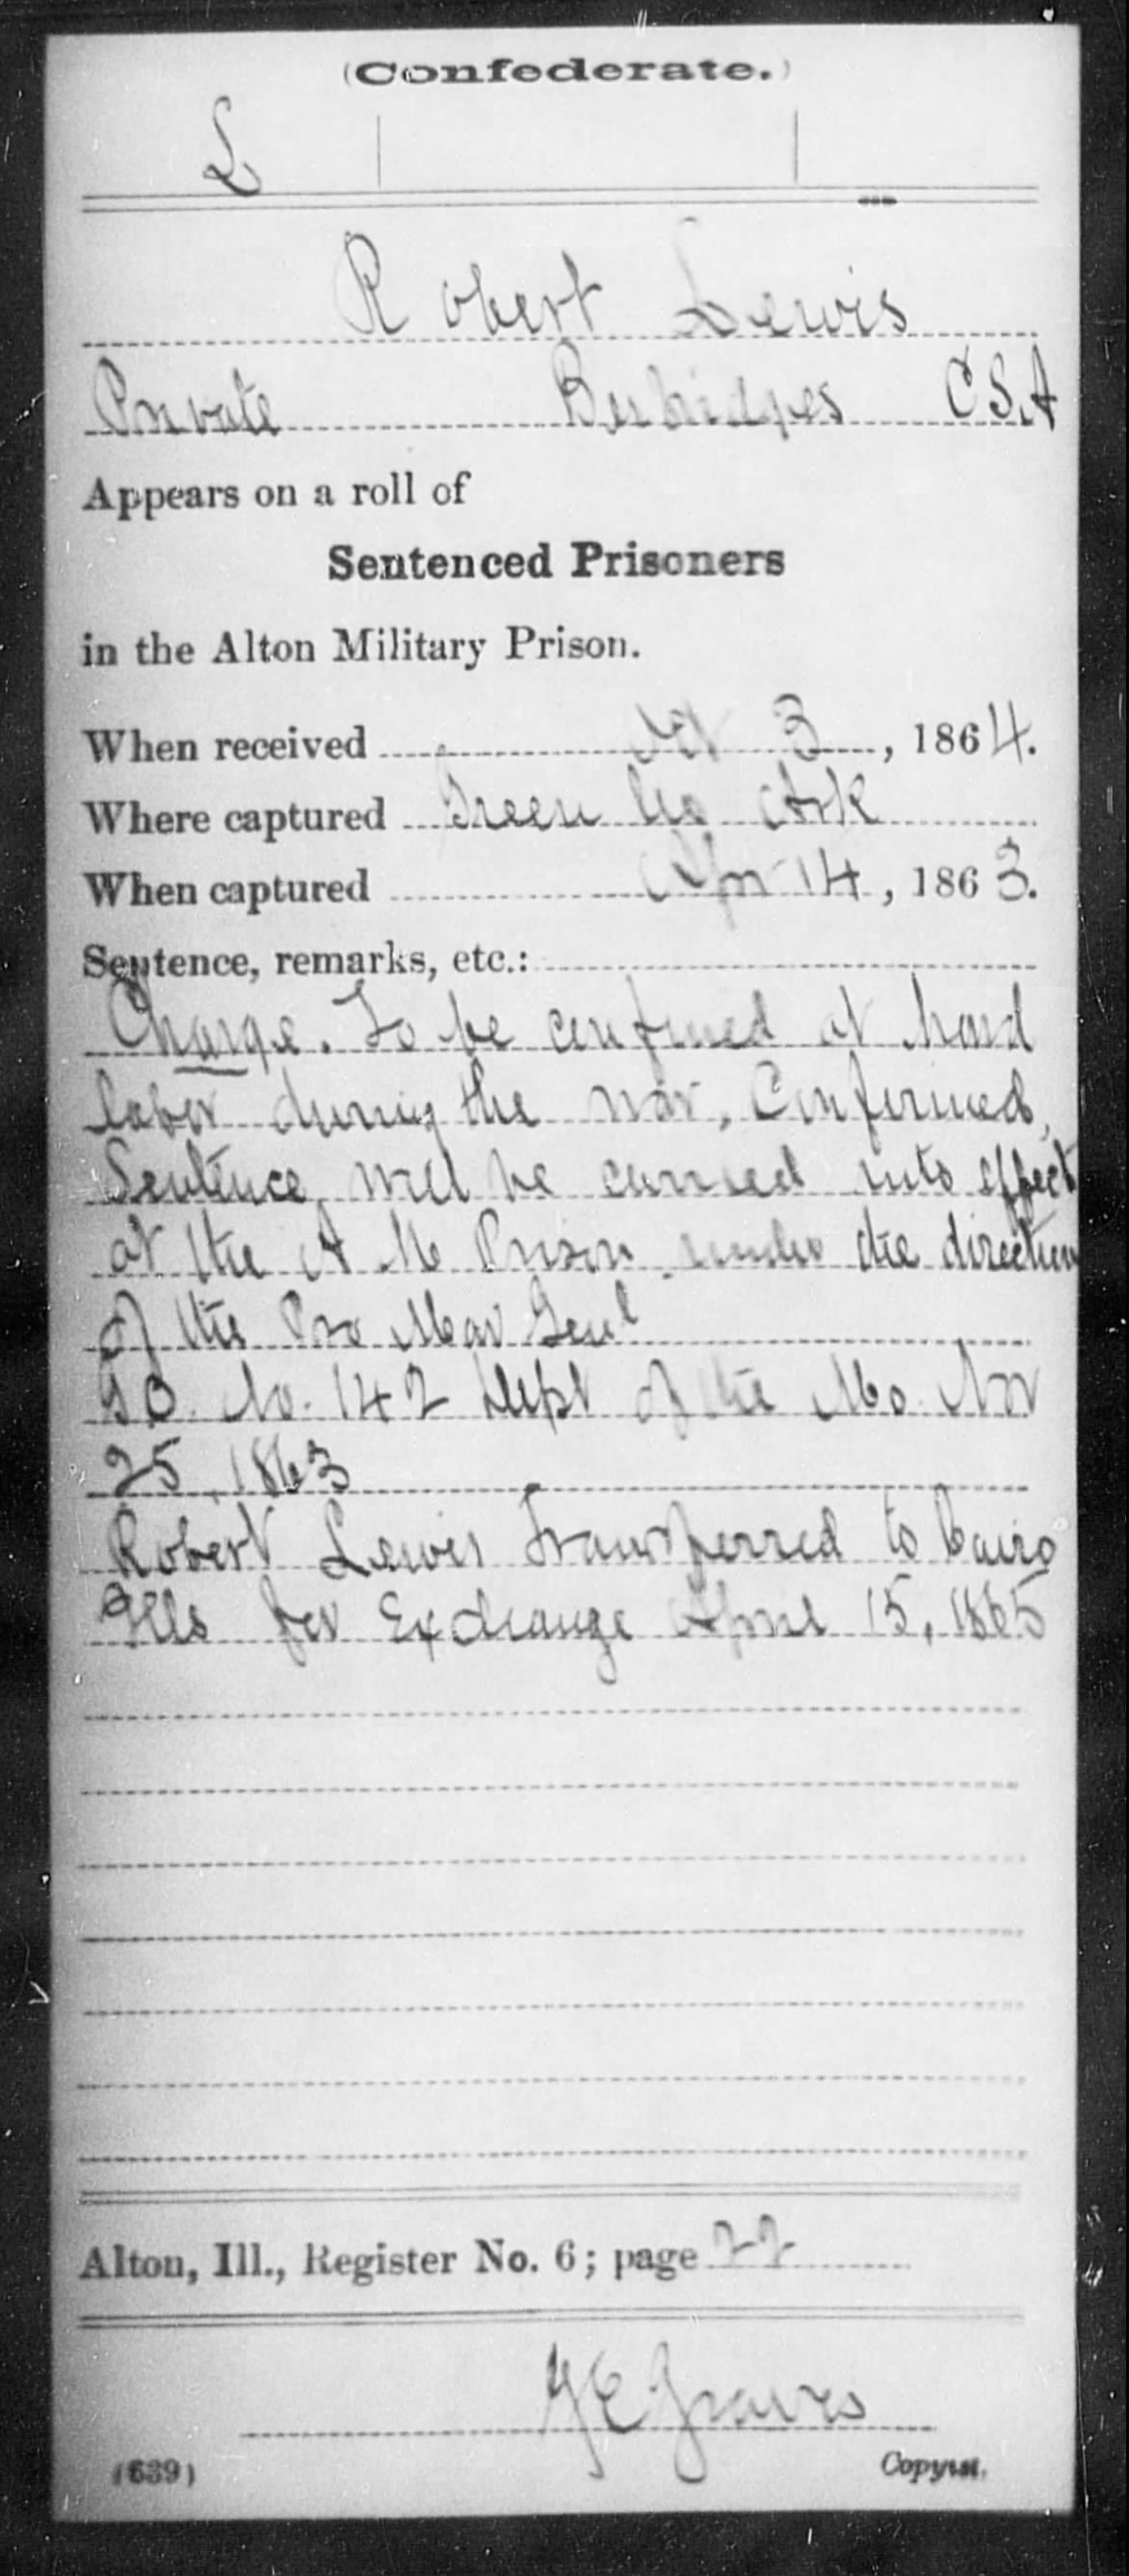 (Confederate.)
L
Robert Lewis
Private Burbidges C.S.A
Appears on a roll of
Sentenced Prisoners
in the Alton Military Prison.
When received 3, 1864.
Where captured Green Co Ark
When captured Apr 14, 1863.
Sentence, remarks, etc.:
Charge. To be confined at hard
labor during the war, Confirmed,
Sentence will be carried into effect
at the A M Prison under the direction
of the Pro Mar Genl
S.O. No. 142 Dept of the Mo. Nov
25, 1863
Robert Lewis Transferred to Cairo
Ills for Exchange April 15, 1865
Alton, Ill., Register No. 6; page 22
Graves
(639) Copyist.